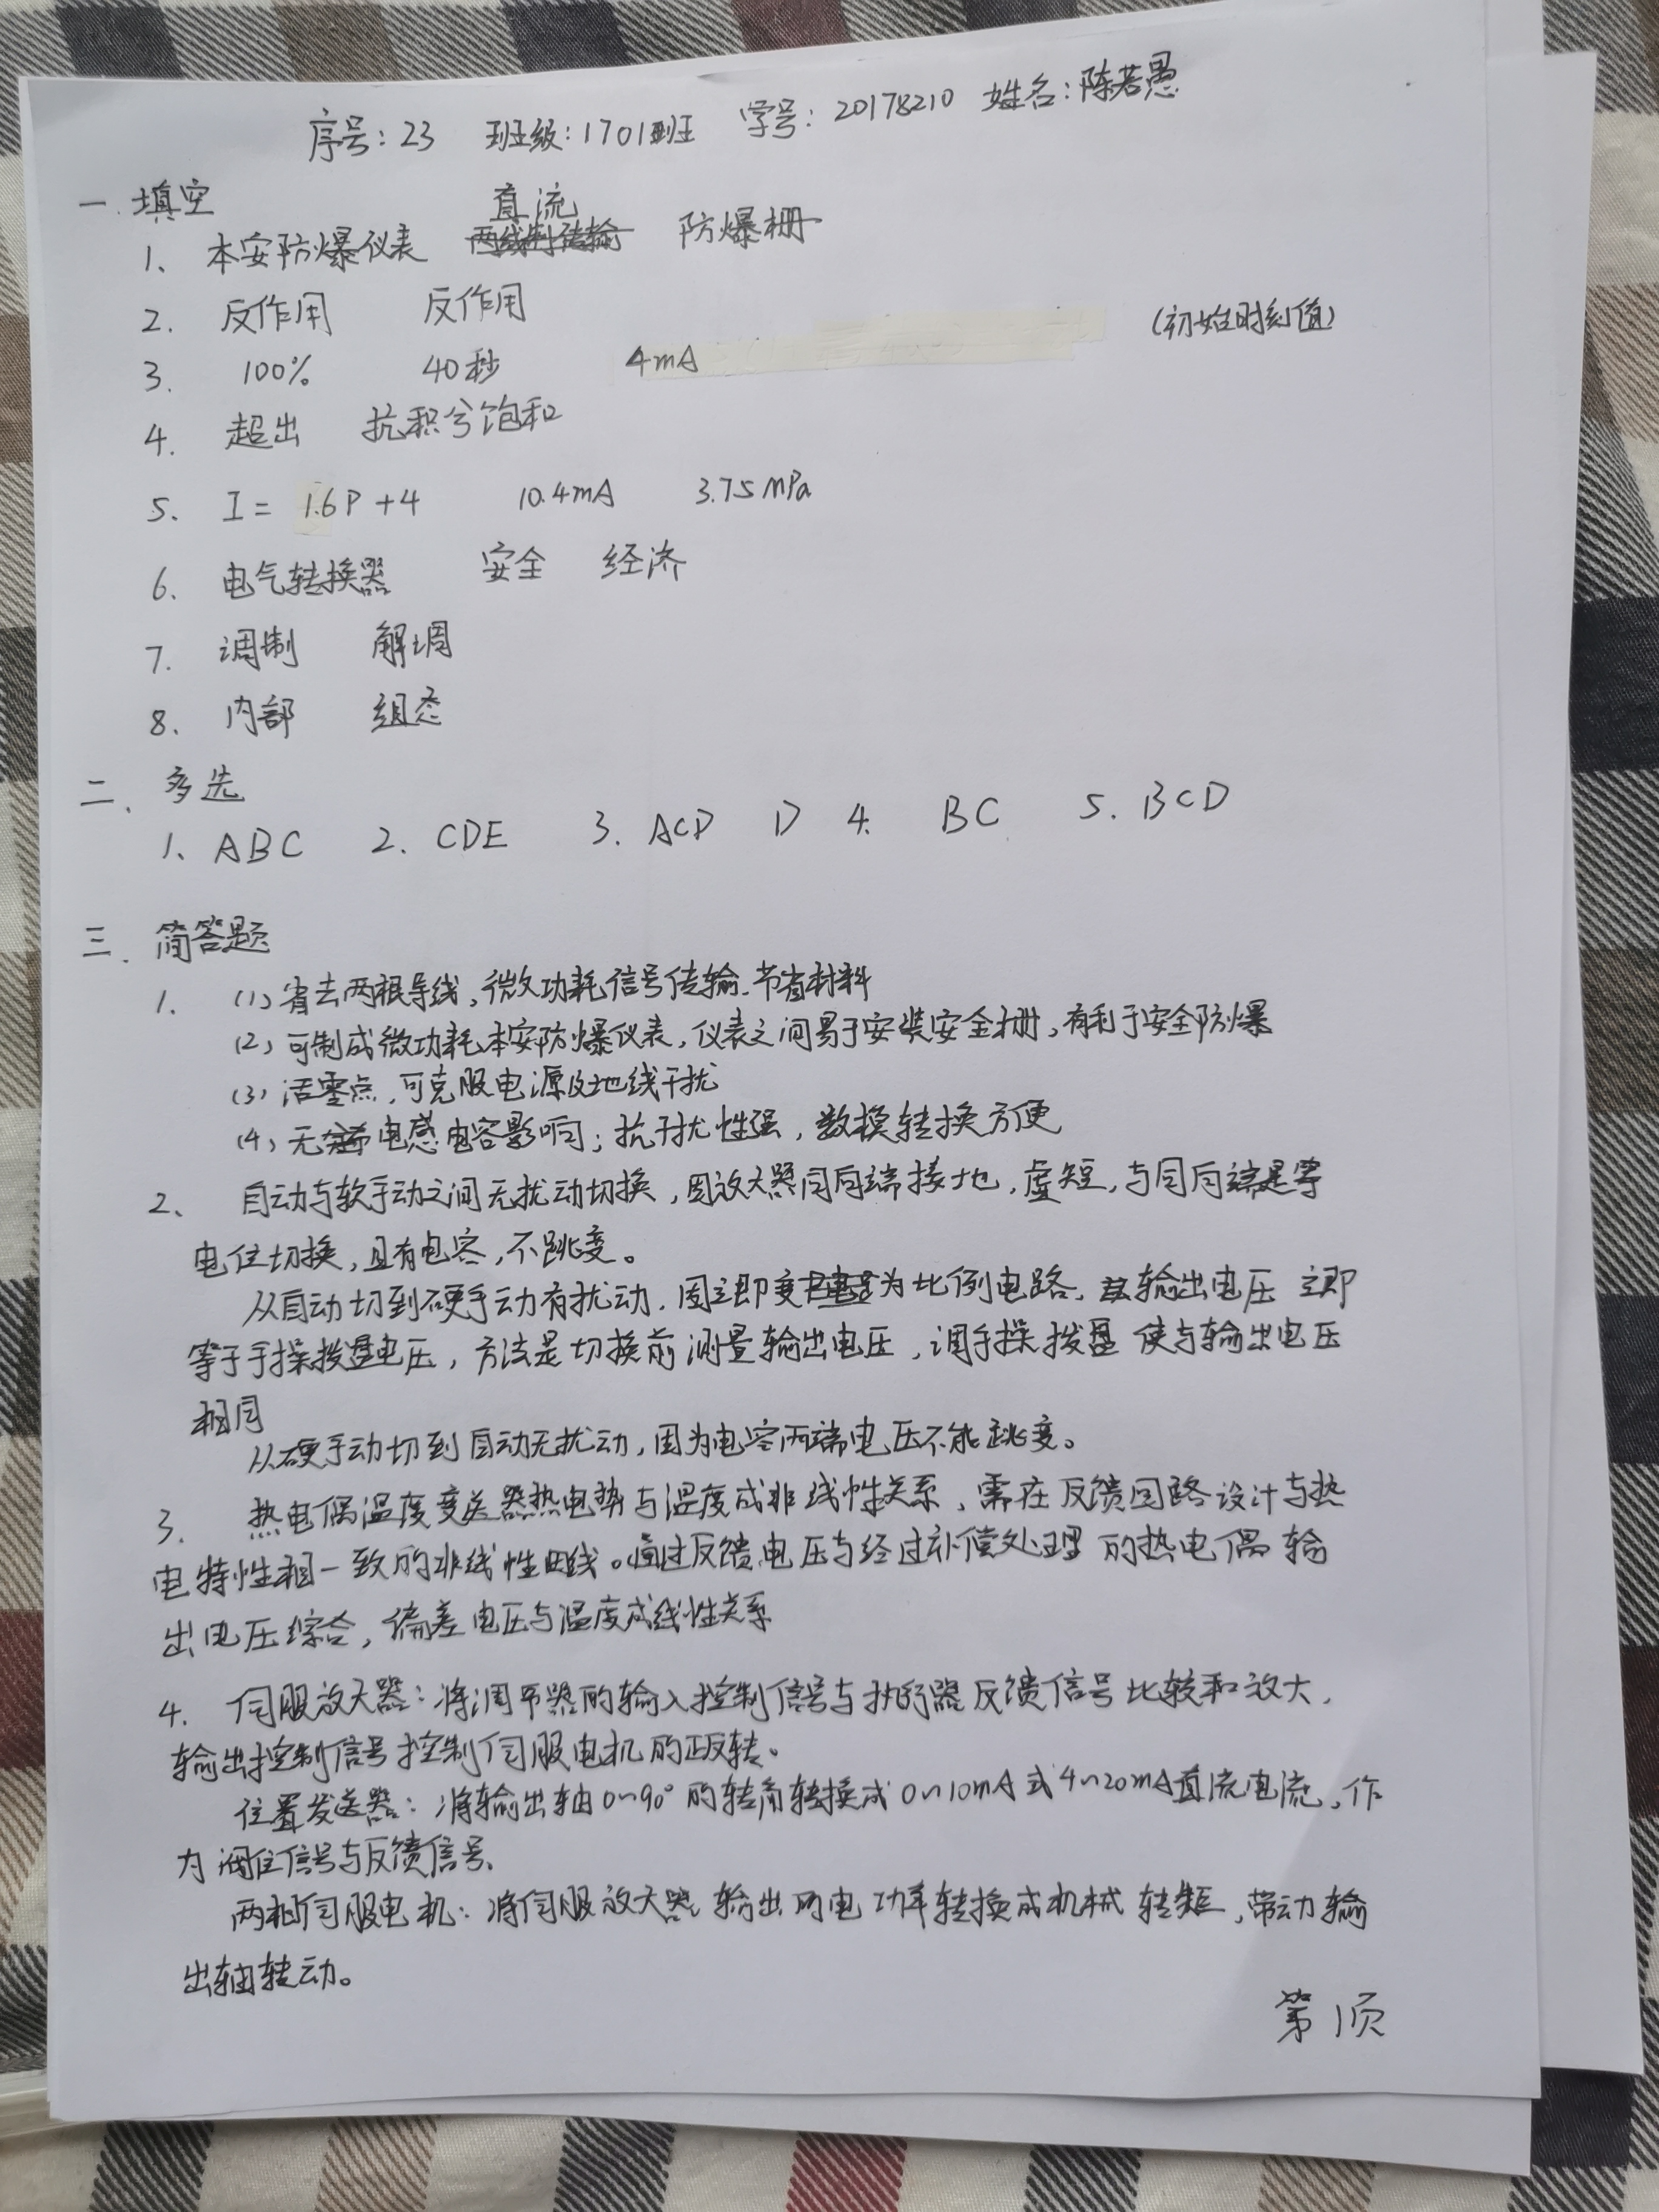 序号：23 班级：1701班 学号：20178210 姓名：陈若愚
一.填空
1、本安防爆仪表 直流 防爆栅
2. 反作用 反作用
3. 100% 40秒 4mA (初始时刻值)
4. 超出 抗积分饱和
5. I = 1.6P+4 10.4mA 3.75MPa
6. 电气转换器 安全 经济
7. 调制 解调
8. 内部 组态
二、多选
1、ABC 2. CDE 3. ACD D 4. BC 5. BCD
三. 简答题
1. (1)省去两根导线，微功耗信号传输.节省材料
(2)可制成微功耗本安防爆仪表，仪表之间易于安装安全栅，有利于安全防爆
(3)活零点，可克服电源及地线干扰
(4)无电感电容影响；抗干扰性强，数模转换方便
2、自动与软手动之间无扰动切换，因放大器同向端接地，虚短，与同向端是等
电位切换，且有电容，不跳变。
从自动切到硬手动有扰动，因立即变为比例电路，输出电压立即
等于手操拨盘电压，方法是切换前测量输出电压，调手操拨盘使与输出电压
相同
从硬手动切到自动无扰动，因为电容两端电压不能跳变。
3. 热电偶温度变送器热电势与温度成非线性关系，需在反馈回路设计与热
电特性相一致的非线性曲线。通过反馈电压与经过补偿处理的热电偶输
出电压综合，偏差电压与温度成线性关系
4. 伺服放大器：将调节器的输入控制信号与执行器反馈信号比较和放大，
输出控制信号控制伺服电机的正反转。
位置发送器：将输出轴0~90°的转角转换成0~10mA或4~20mA直流电流，作
为阀位信号与反馈信号、
两相伺服电机：将伺服放大器输出的电功率转换成机械转矩，带动输
出轴转动。
第1页